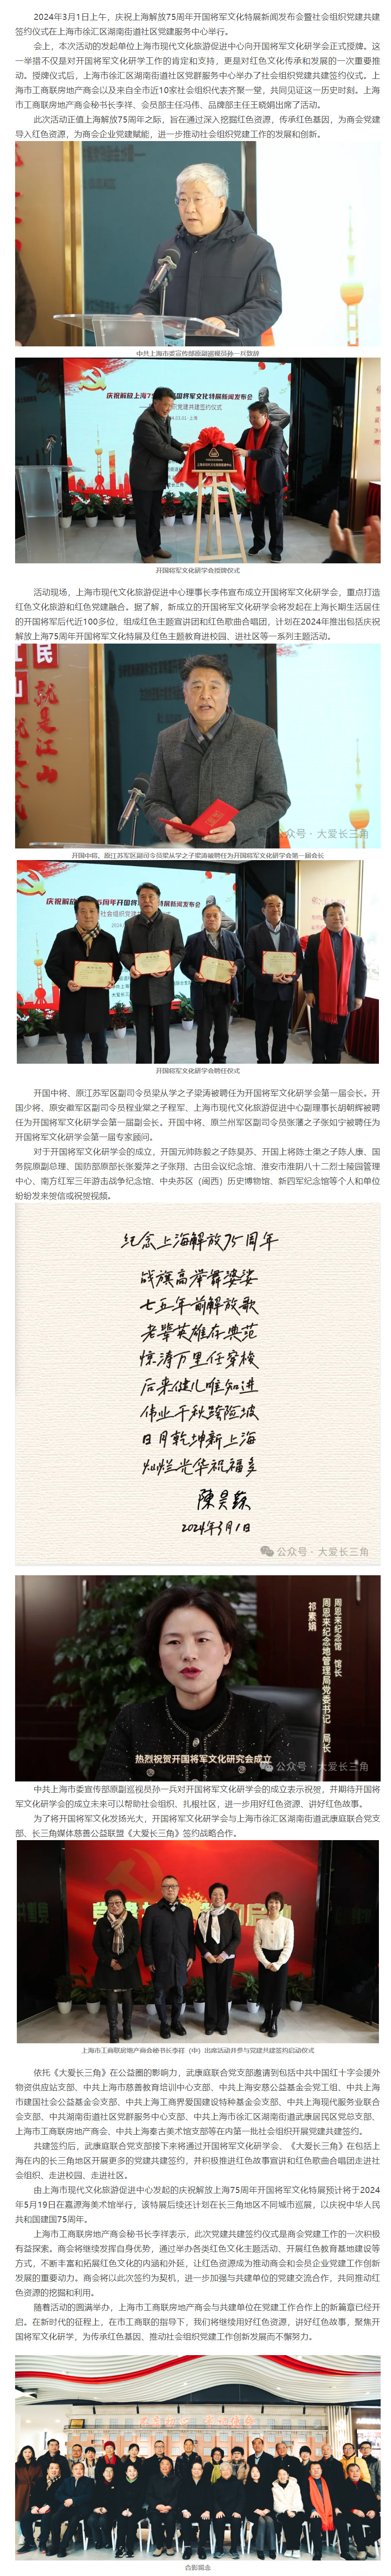 2024年3月1日上午，庆祝上海解放75周年开国将军文化特展新闻发布会暨社会组织党建共建
签约仪式在上海市徐汇区湖南街道社区党建服务中心举行。
会上，本次活动的发起单位上海市现代文化旅游促进中心向开国将军文化研学会正式授牌。这
一举措不仅是对开国将军文化研学工作的肯定和支持，更是对红色文化传承和发展的一次重要推
动。授牌仪式后，上海市徐汇区湖南街道社区党群服务中心举办了社会组织党建共建签约仪式。上
海市工商联房地产商会以及来自全市近10家社会组织代表齐聚一堂，共同见证这一历史时刻。上海
市工商联房地产商会秘书长李祥、会员部主任冯伟、品牌部主任王晓娟出席了活动。
此次活动正值上海解放75周年之际，旨在通过深入挖掘红色资源，传承红色基因，为商会党建
导入红色资源，为商会企业党建赋能，进一步推动社会组织党建工作的发展和创新。
中共上海市委宣传部原副巡视员孙一兵致辞
开国将军文化研学会授牌仪式
活动现场，上海市现代文化旅游促进中心理事长李伟宣布成立开国将军文化研学会，重点打造
红色文化旅游和红色党建融合。据了解，新成立的开国将军文化研学会将发起在上海长期生活居住
的开国将军后代近100多位，组成红色主题宣讲团和红色歌曲合唱团，计划在2024年推出包括庆祝
解放上海75周年开国将军文化特展及红色主题教育进校园、进社区等一系列主题活动。
公众号·大爱长三角
开国中将、原江苏军区副司令员梁从学之子梁涛被聘任为开国将军文化研学会第一届会长
开国将军文化研学会聘任仪式
开国中将、原江苏军区副司令员梁从学之子梁涛被聘任为开国将军文化研学会第一届会长。开
国少将、原安徽军区副司令员程业棠之子程军、上海市现代文化旅游促进中心副理事长胡朝辉被聘
任为开国将军文化研学会第一届副会长。开国中将、原兰州军区副司令员张藩之子张如宁被聘任为
开国将军文化研学会第一届专家顾问。
对于开国将军文化研学会的成立，开国元帅陈毅之子陈昊苏、开国上将陈士榘之子陈人康、国
务院原副总理、国防部原部长张爱萍之子张翔、古田会议纪念馆、淮安市淮阴八十二烈士陵园管理
中心、南方红军三年游击战争纪念馆、中央苏区（闽西）历史博物馆、新四军纪念馆等个人和单位
纷纷发来贺信或祝贺视频。
纪念上海解放75周年
战旗高举舞婆娑
七五年前解放歌
老辈英雄存典范
惊涛万里任穿梭
后来健儿唯知进
伟业千秋跨险坡
日月乾坤新上海
灿烂光华祝福多
陈昊苏
2024年3月1日
公众号·大爱长三角
周恩来纪念馆 馆长
周恩来纪念地管理局党委书记 局长
祁素娟
热烈祝贺开国将军文化研究会成立
公众号·大爱长三角
中共上海市委宣传部原副巡视员孙一兵对开国将军文化研学会的成立表示祝贺，并期待开国将
军文化研学会的成立未来可以帮助社会组织、扎根社区，进一步用好红色资源、讲好红色故事。
为了将开国将军文化发扬光大，开国将军文化研学会与上海市徐汇区湖南街道武康庭联合党支
部、长三角媒体慈善公益联盟《大爱长三角》签约战略合作。
上海市工商联房地产商会秘书长李祥（中）出席活动并参与党建共建签约启动仪式
依托《大爱长三角》在公益圈的影响力，武康庭联合党支部邀请到包括中共中国红十字会援外
物资供应站支部、中共上海市慈善教育培训中心支部、中共上海安慈公益基金会党工组、中共上海
市建国社会公益基金会支部、中共上海工商界爱国建设特种基金会支部、中共上海现代服务业联合
会支部、中共湖南街道社区党群服务中心支部、中共上海市徐汇区湖南街道武康居民区党总支部、
上海市工商联房地产商会、中共上海泰古美术馆支部等在内第一批社会组织开展党建共建签约。
共建签约后，武康庭联合党支部接下来将通过开国将军文化研学会、《大爱长三角》在包括上
海在内的长三角地区开展更多的党建共建签约，并积极推进红色故事宣讲和红色歌曲合唱团走进社
会组织、走进校园、走进社区。
由上海市现代文化旅游促进中心发起的庆祝解放上海75周年开国将军文化特展预计将于2024
年5月19日在嘉源海美术馆举行，该特展后续还计划在长三角地区不同城市巡展，以庆祝中华人民
共和国建国75周年。
上海市工商联房地产商会秘书长李祥表示，此次党建共建签约仪式是商会党建工作的一次积极
有益探索。商会将继续发挥自身优势，通过举办各类红色文化主题活动、开展红色教育基地建设等
方式，不断丰富和拓展红色文化的内涵和外延，让红色资源成为推动商会和会员企业党建工作创新
发展的重要动力。商会将以此次签约为契机，进一步加强与共建单位的党建交流合作，共同推动红
色资源的挖掘和利用。
随着活动的圆满举办，上海市工商联房地产商会与共建单位在党建工作合作上的新篇章已经开
启。在新时代的征程上，在市工商联的指导下，我们将继续用好红色资源，讲好红色故事，聚焦开
国将军文化研学，为传承红色基因、推动社会组织党建工作创新发展而不懈努力。
合影留念